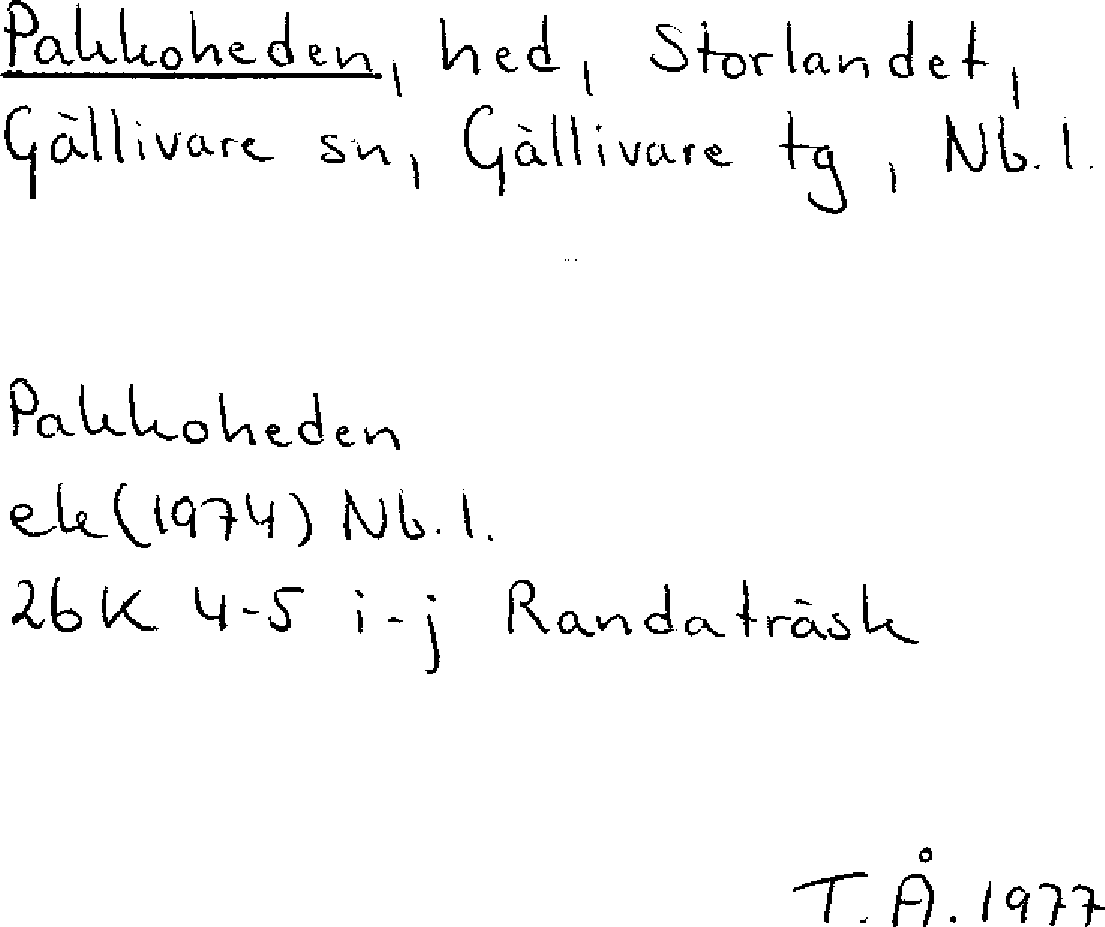 Pakkoheden, hed, Storlandet,
Gällivare sn, Gällivare tg, Nb.l.
Pakkoheden
ek(1974) Nb.l.
26K 4-5 i-j Randaträsk
T.Å.1977